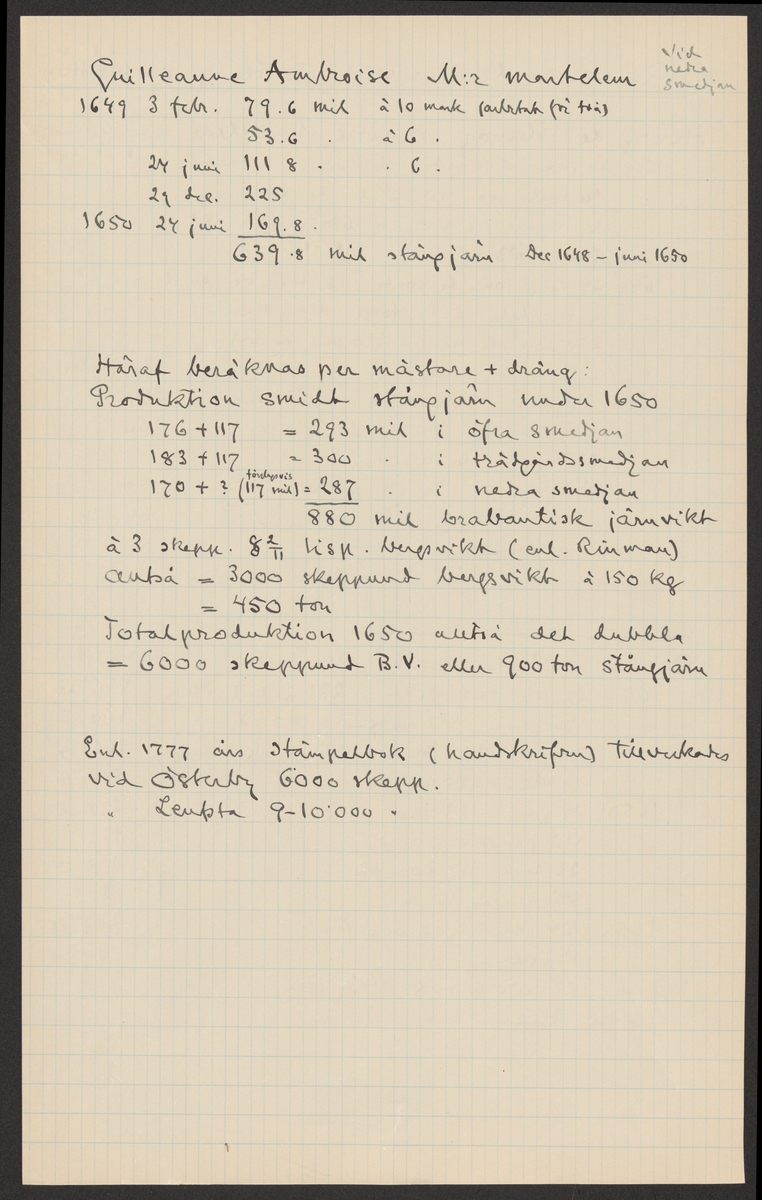 Vid
nedra
smedjan
Guilleaume Ambroise M:r martelem
1649 3 febr. 79.6 mil à 10 mark
53.6 . à 6 .
24 juni 111 8 . . 6 .
29 dec. 225
1650 24 juni 169.8 .
639.8 mil stångjärn Dec 1648 – juni 1650
Häraf beräknas per mästare + dräng:
Produktion smidt stångjärn under 1650
176 + 117 = 293 mil i öfra smedjan
183 + 117 = 300 . i trädgårdssmedjan
170 + ? (förslagsvis 117 mil) = 287 . i nedra smedjan
880 mil brabantisk järnvikt
à 3 skepp. 8 2/11 lisp. bergsvikt (enl. Rinman)
alltså = 3000 skeppund bergsvikt à 150 kg
= 450 ton
Totalproduktion 1650 alltså det dubbla
= 6000 skeppund B.V. eller 900 ton stångjärn
Enl. 1777 års Stämpelbok (handskrifven) tillverkades
vid Österby 6000 skepp.
" Leufsta 9-10'000 "